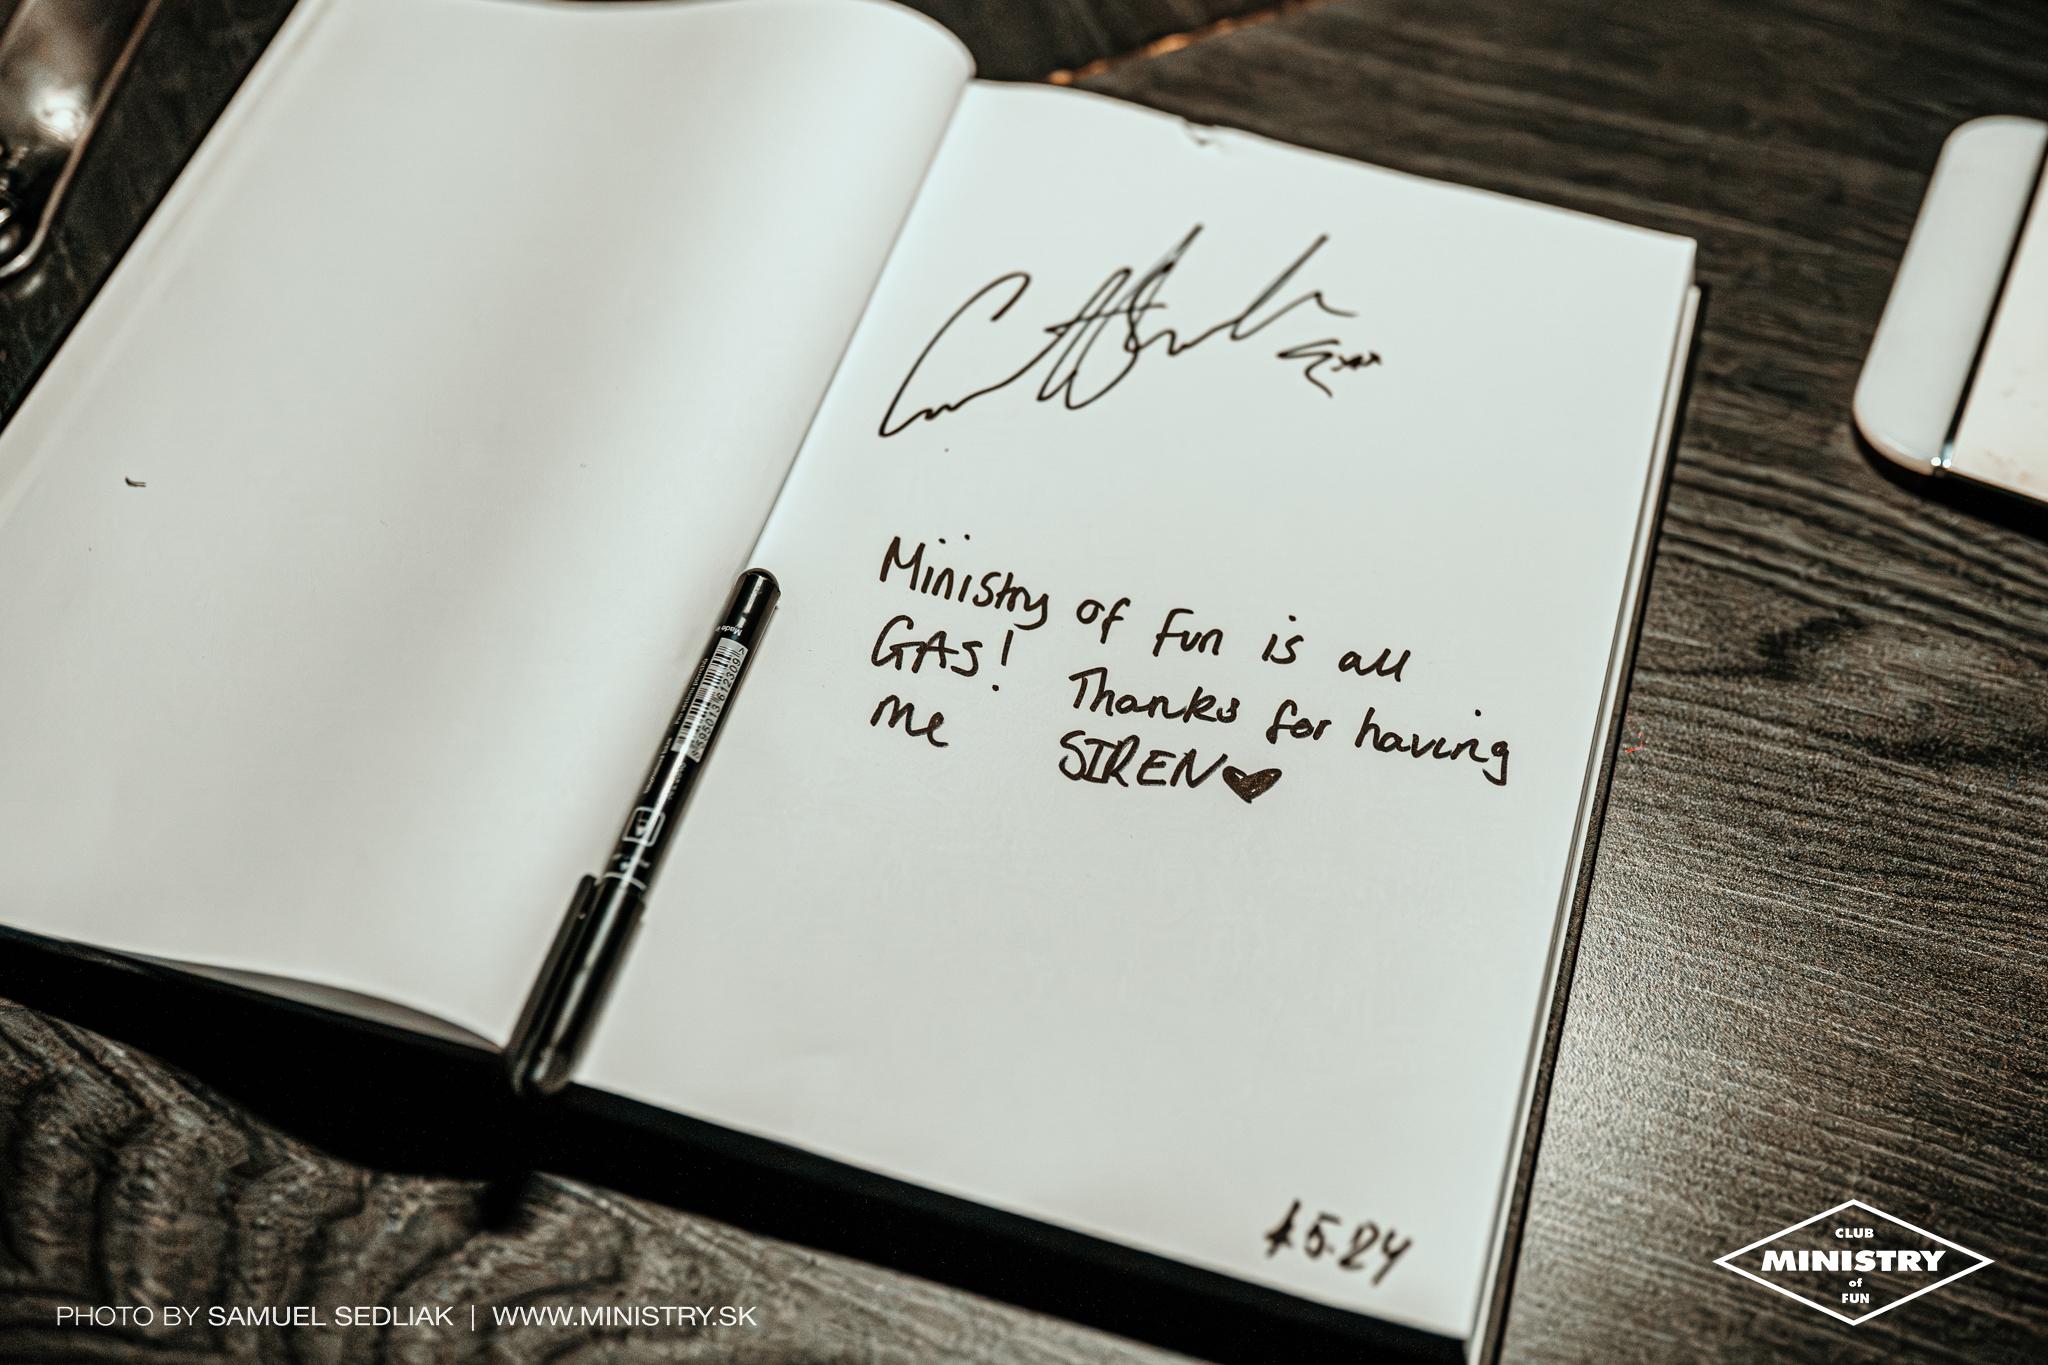 Ministry of Fun is all
GAS! Thanks for having
me SIREN
PHOTO BY SAMUEL SEDLIAK | WWW.MINISTRY.SK
CLUB
MINISTRY
of
FUN